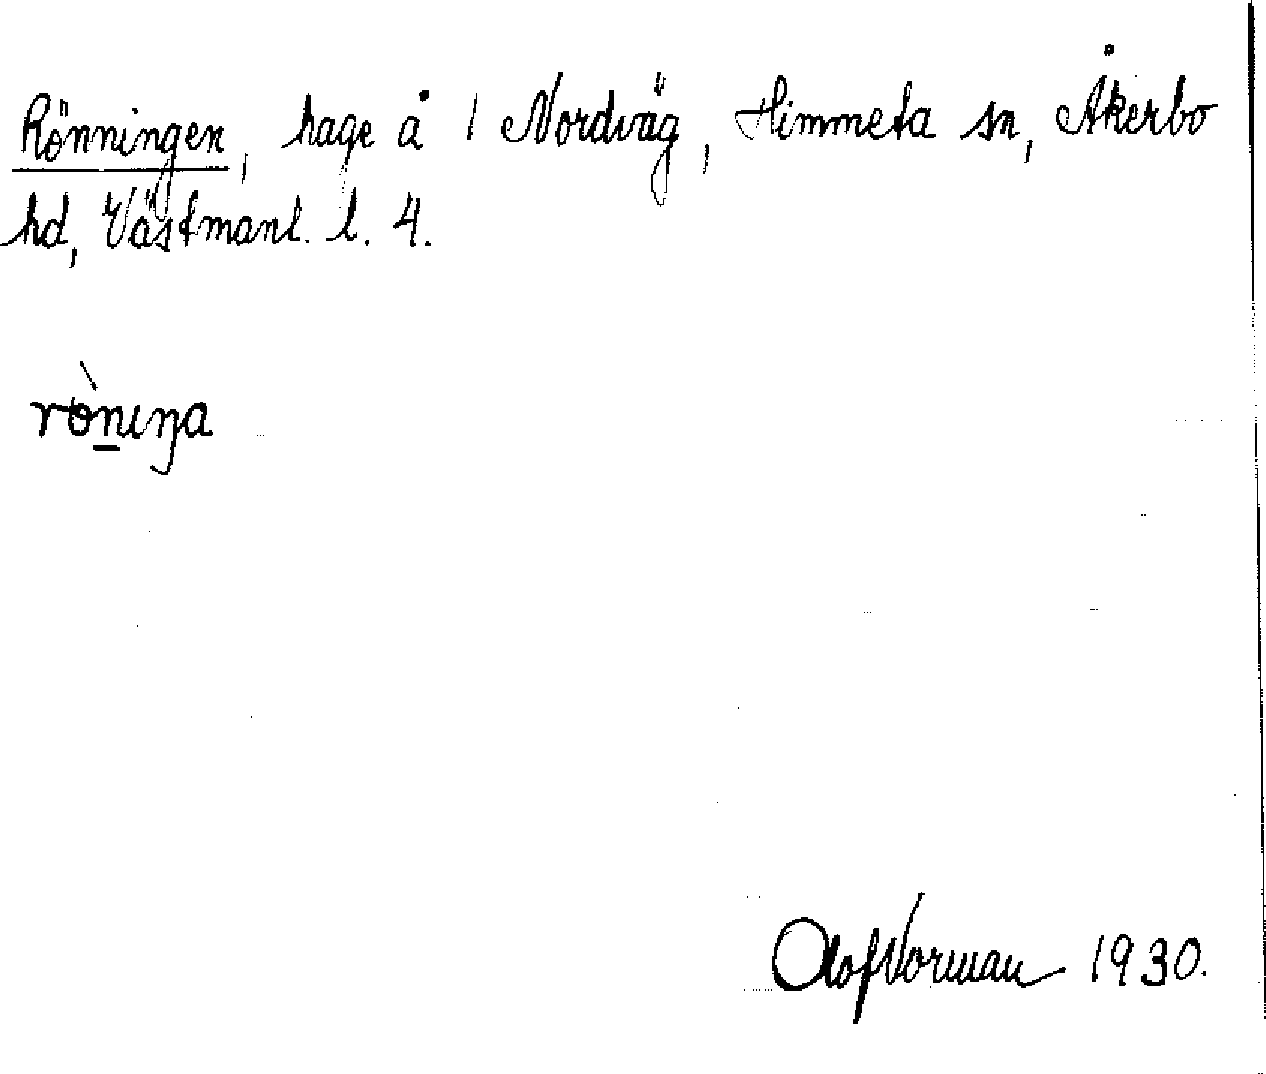 Rönningen, hage å 1 Nordväg, Himmeta sn, Åkerbo
hd, Västmanl. l. 4.
rö̀nıŋa
Olof Norman 1930.